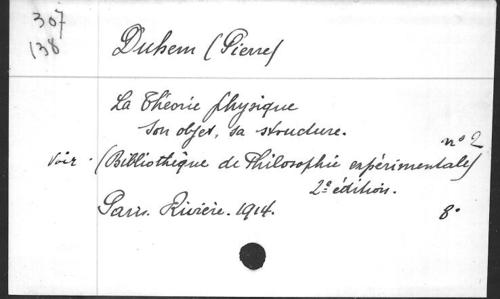 307
138
Duhem (Pierre)
La Théorie physique
son objet, sa structure.
n° 2
voir. (Bibliothèque de Philosophie expérimentale)
2e édition.
Paris. Rivière. 1914. 8°